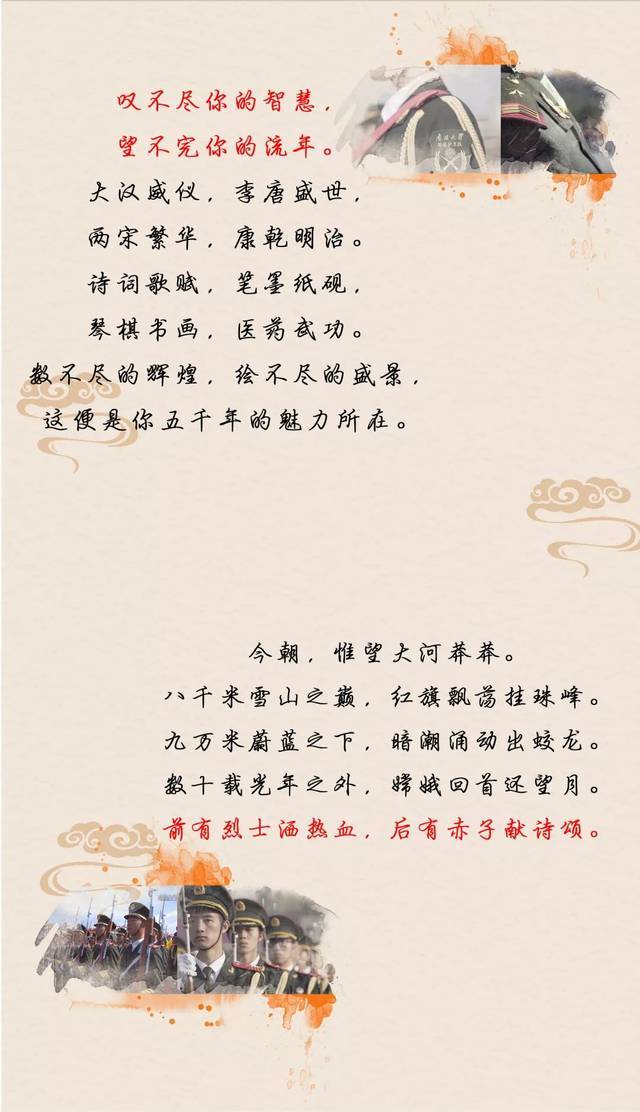 叹不尽你的智慧，
望不完你的流年。
大汉威仪，李唐盛世，
两宋繁华，康乾明治。
诗词歌赋，笔墨纸砚，
琴棋书画，医药武功。
数不尽的辉煌，绘不尽的盛景，
这便是你五千年的魅力所在。
今朝，惟望大河莽莽。
八千米雪山之巅，红旗飘荡挂珠峰。
九万米蔚蓝之下，暗潮涌动出蛟龙。
数十载光年之外，嫦娥回首还望月。
前有烈士洒热血，后有赤子献诗颂。